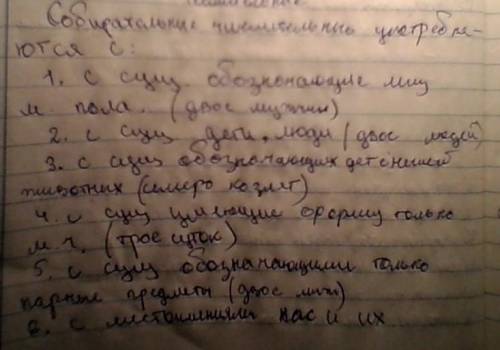 Собирательные числительные употребля-
ются с:
1. с сущ обозначающие лиц
м. пола. (двое мужчин)
2. с сущ дети, люди (двое людей)
3. с сущ обозначающих детенышей
животных (семеро козлят)
4. с сущ имеющие форму только
м.ч. (трое суток)
5. с сущ обозначающими только
парные предметы (двое)
6. с местоимениями нас и их